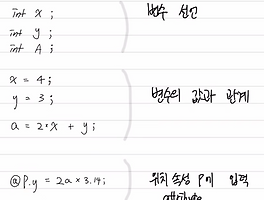 int x ;
변수 선언
int y ;
int A ;
x = 4 ;
y = 3 ;
변수의 값과 관계
a = 2*x + y ;
@P.y = 2a × 3.14 ;
위치 속성 P에 입력
attribute